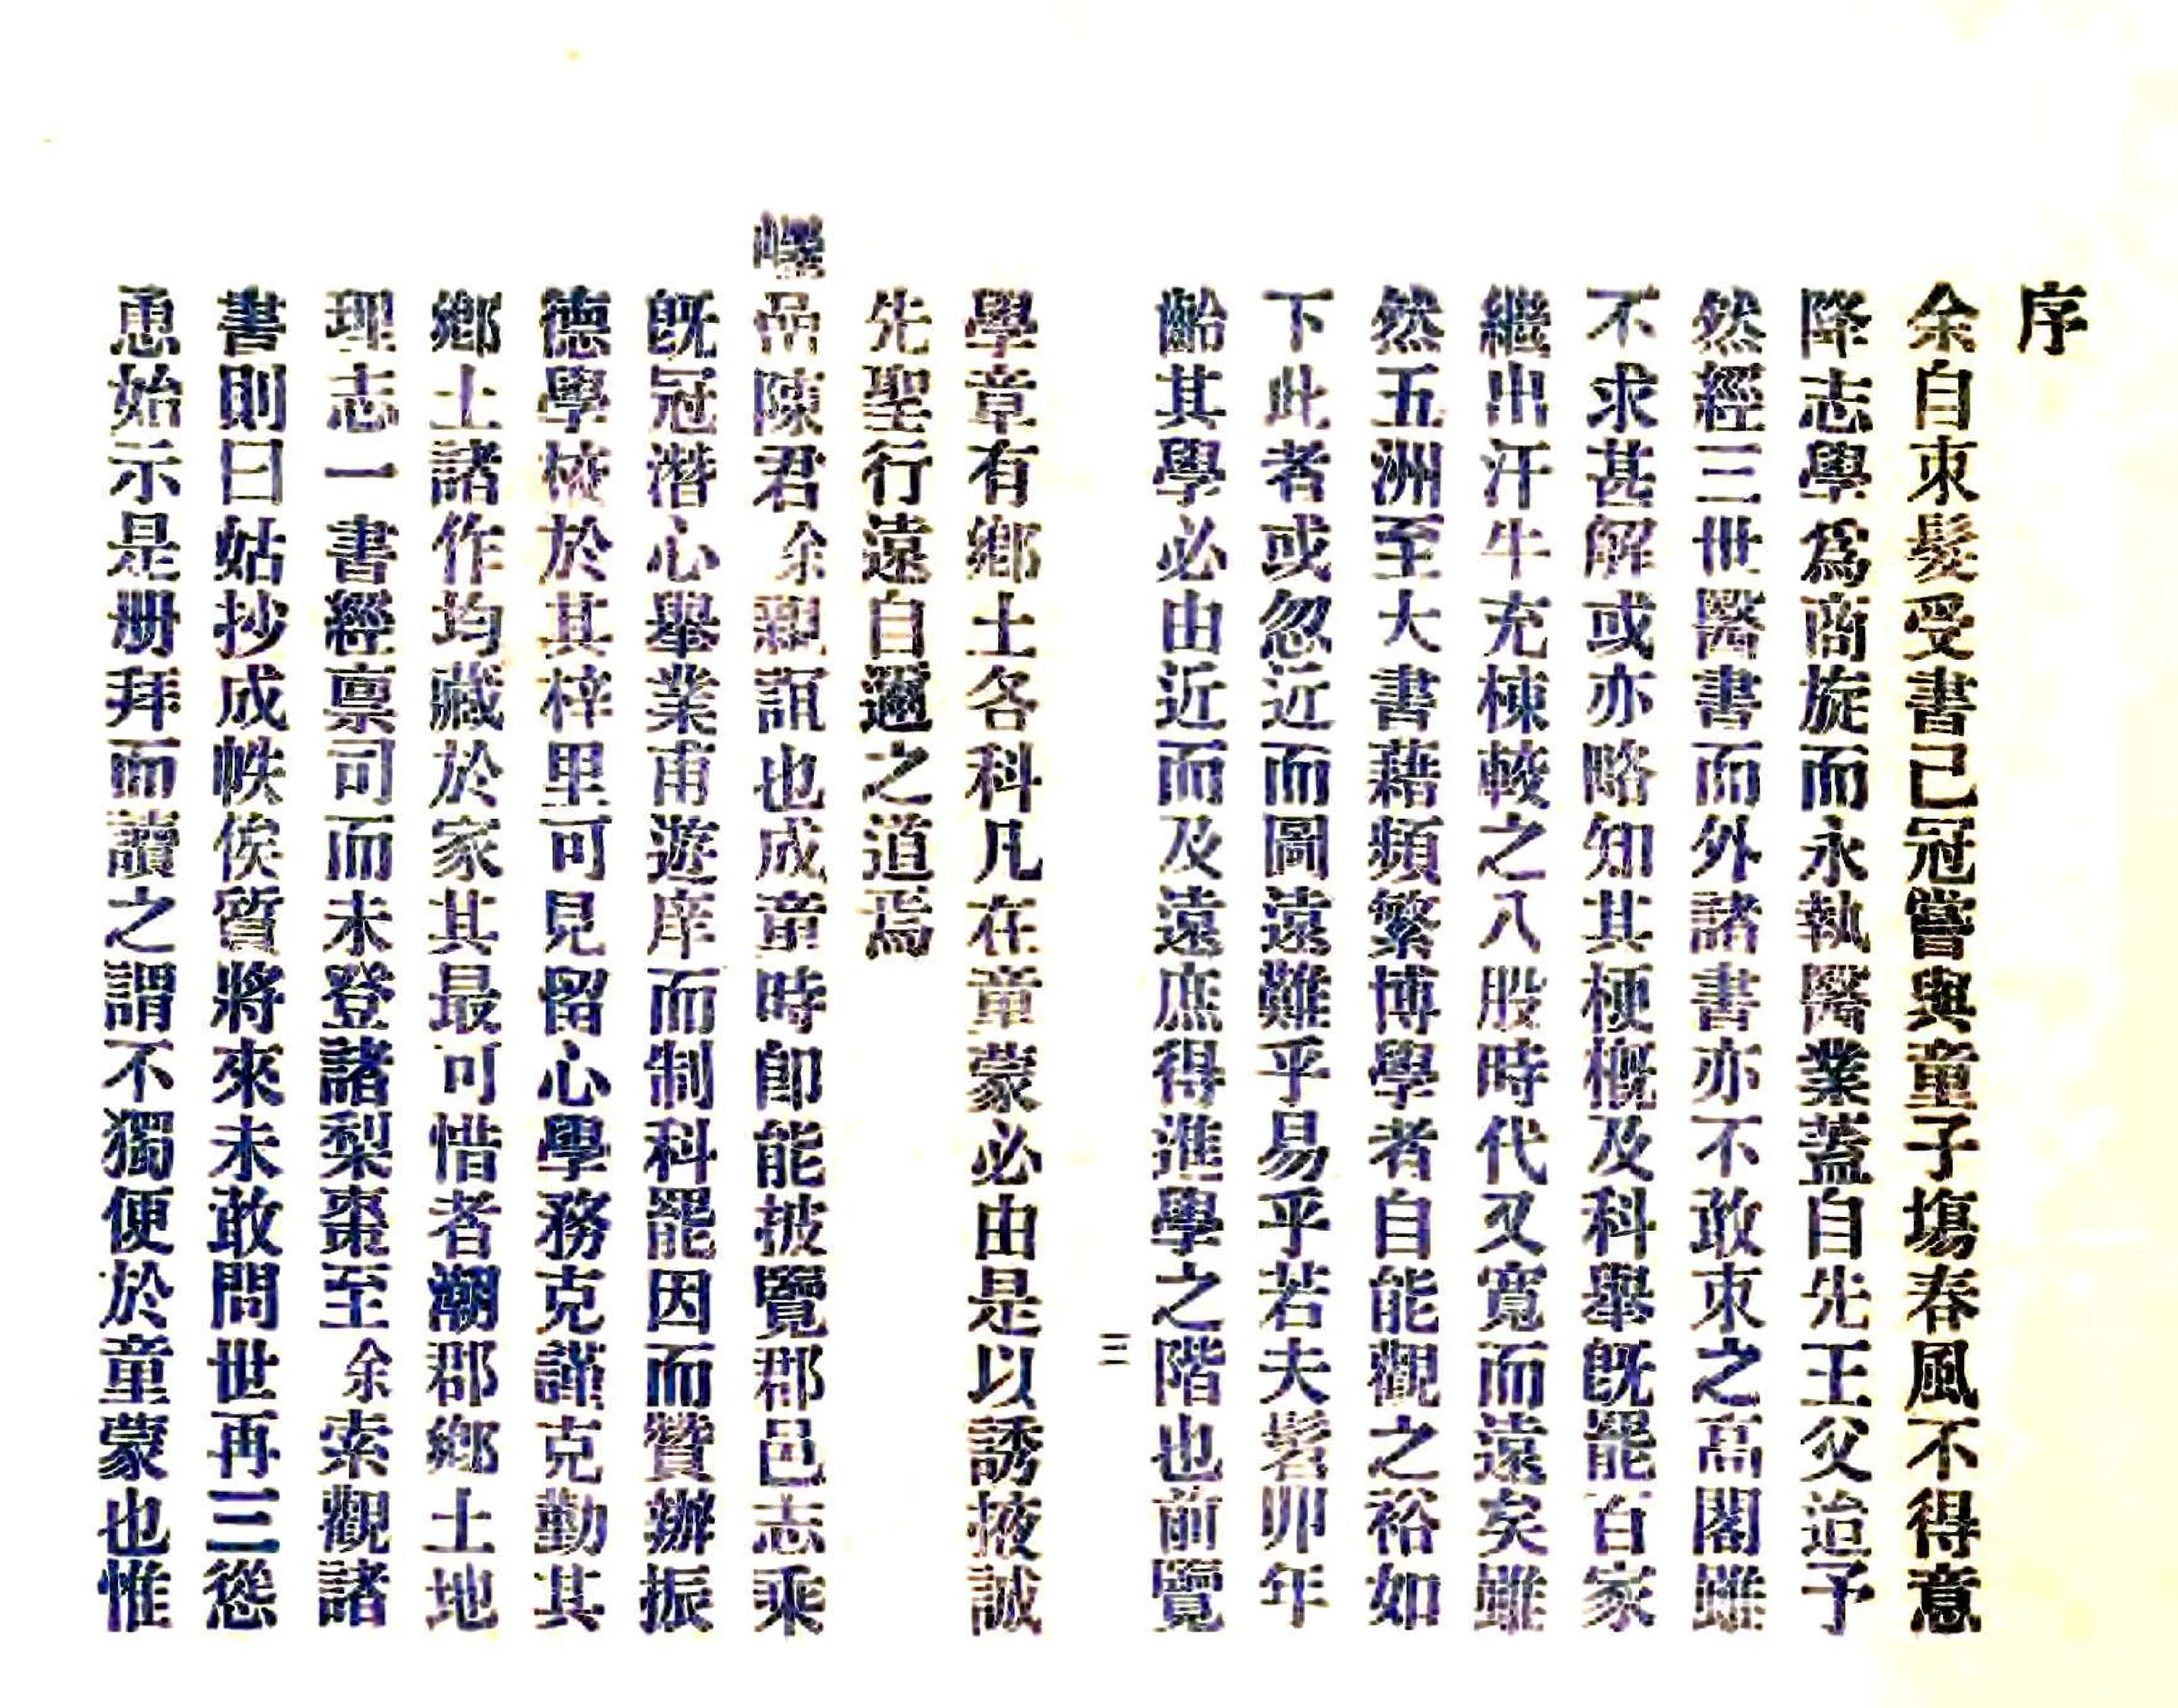 序
余自束髮受書已冠嘗與童子塲春風不得意
降志學爲商旋而永執醫業蓋自先王父迨予
然經三世醫書而外諸書亦不敢束之高閣雖
不求甚解或亦略知其梗概及科舉旣罷百家
繼出汗牛充棟較之八股時代又寬而遠矣雖
然五洲至大書藉頻繁博學者自能觀之裕如
下此者或忽近而圖遠難乎易乎若夫髫丱年
齡其學必由近而及遠庶得進學之階也前覽
三
學章有鄉土各科凡在童蒙必由是以誘掖誠
先聖行遠自邇之道焉
嵒陳君余親誼也成童時卽能披覽郡邑志乘
旣冠潛心舉業甫遊庠而制科罷因而贊辦振
德學校於其梓里可見留心學務克謹克勤其
鄉土諸作均藏於家其最可惜者潮郡鄉土地
理志一書經禀司而未登諸梨棗至余索觀諸
書則曰姑抄成帙俟質將來未敢問世再三慫
恿始示是册拜而讀之謂不獨便於童蒙也惟